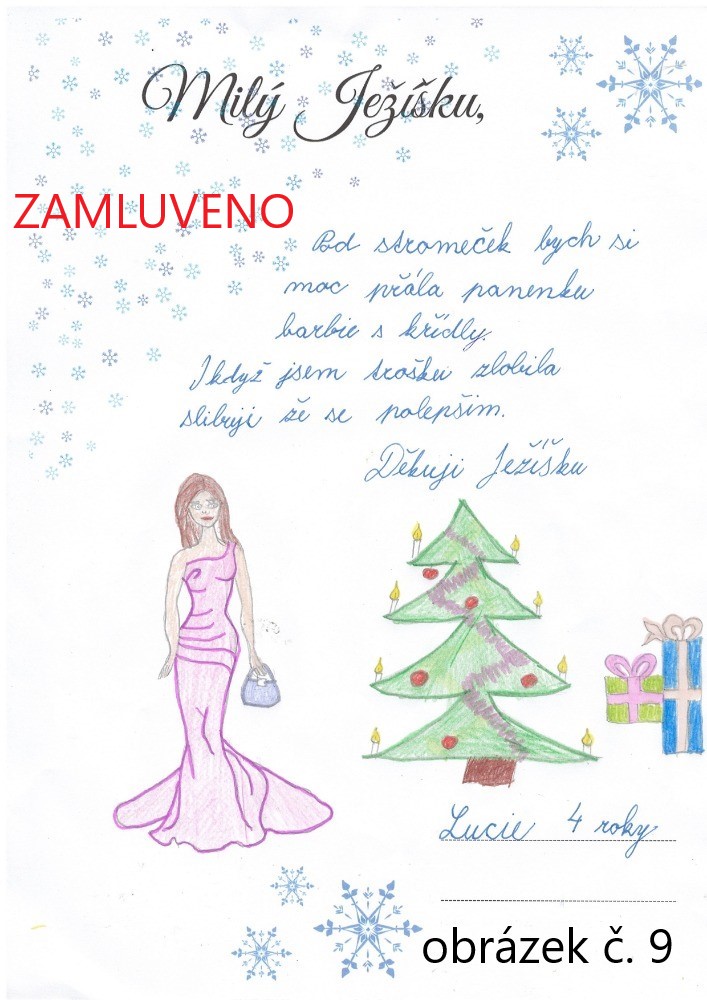 Milý Ježíšku,
ZAMLUVENO
Pod stromeček bych si
moc přála panenku
barbie s křídly.
I když jsem trošku zlobila
slibuji že se polepším.
Děkuji Ježíšku
Lucie 4 roky
obrázek č. 9